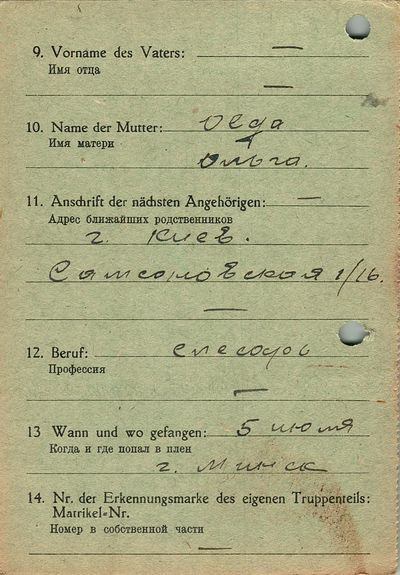 9. Vorname des Vaters: —
Имя отца
—
10. Name der Mutter: Olga
Имя матери
Ольга.
11. Anschrift der nächsten Angehörigen: —
Адрес ближайших родственников
г. Киев.
Самсоновская 1/16.
—
12. Beruf: слесарь
Профессия
—
13 Wann und wo gefangen: 5 июля
Когда и где попал в плен
г. Минск
14. Nr. der Erkennungsmarke des eigenen Truppenteils:
Matrikel-Nr.
Номер в собственной части
—